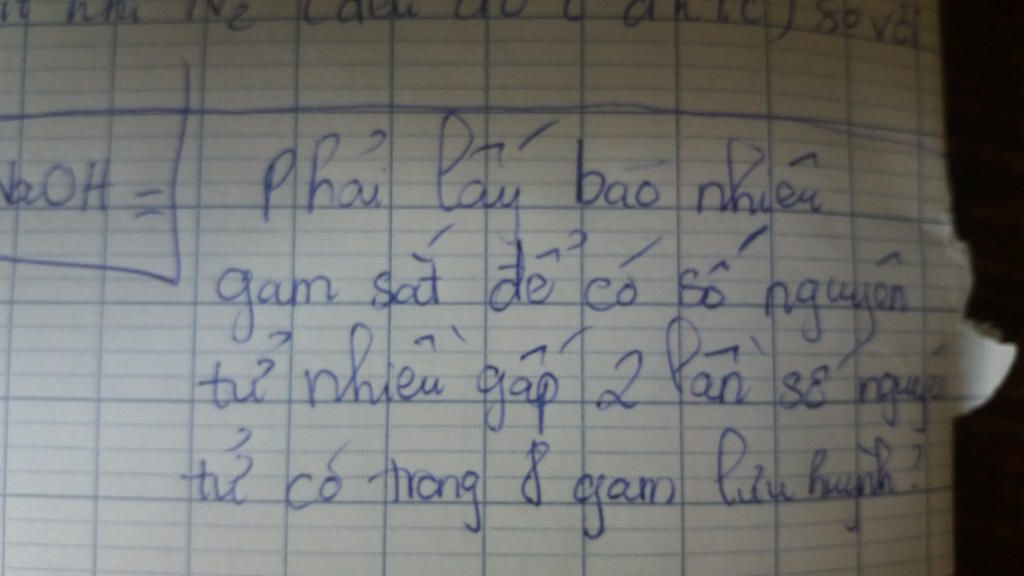 khí N₂ (đều đo ở đktc) so với
NaOH =
Phải lấy bao nhiêu
gam sắt để có số nguyên
tử nhiều gấp 2 lần số nguyê
tử có trong 8 gam lưu huỳnh?